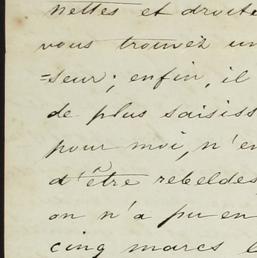 nettes et droite
vous trouvez un
=seur; enfin, il
de plus saisiss
pour moi, n'en
d'être rebelles
on n'a pu en
cinq marcs l